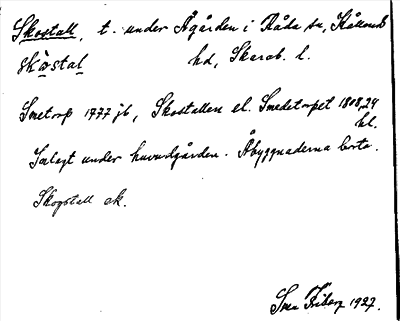 Skostall, t. under Ågården i Råda sn, Kållands
skòstal hd, Skarab. l.
Smetorp 1777 jb, Skostallen el. Smedetorpet 1808,24
hl.
Ivlagt under huvudgården. Åbyggnaderna borta.
Skogstall ek.
Sven Friberg 1927.